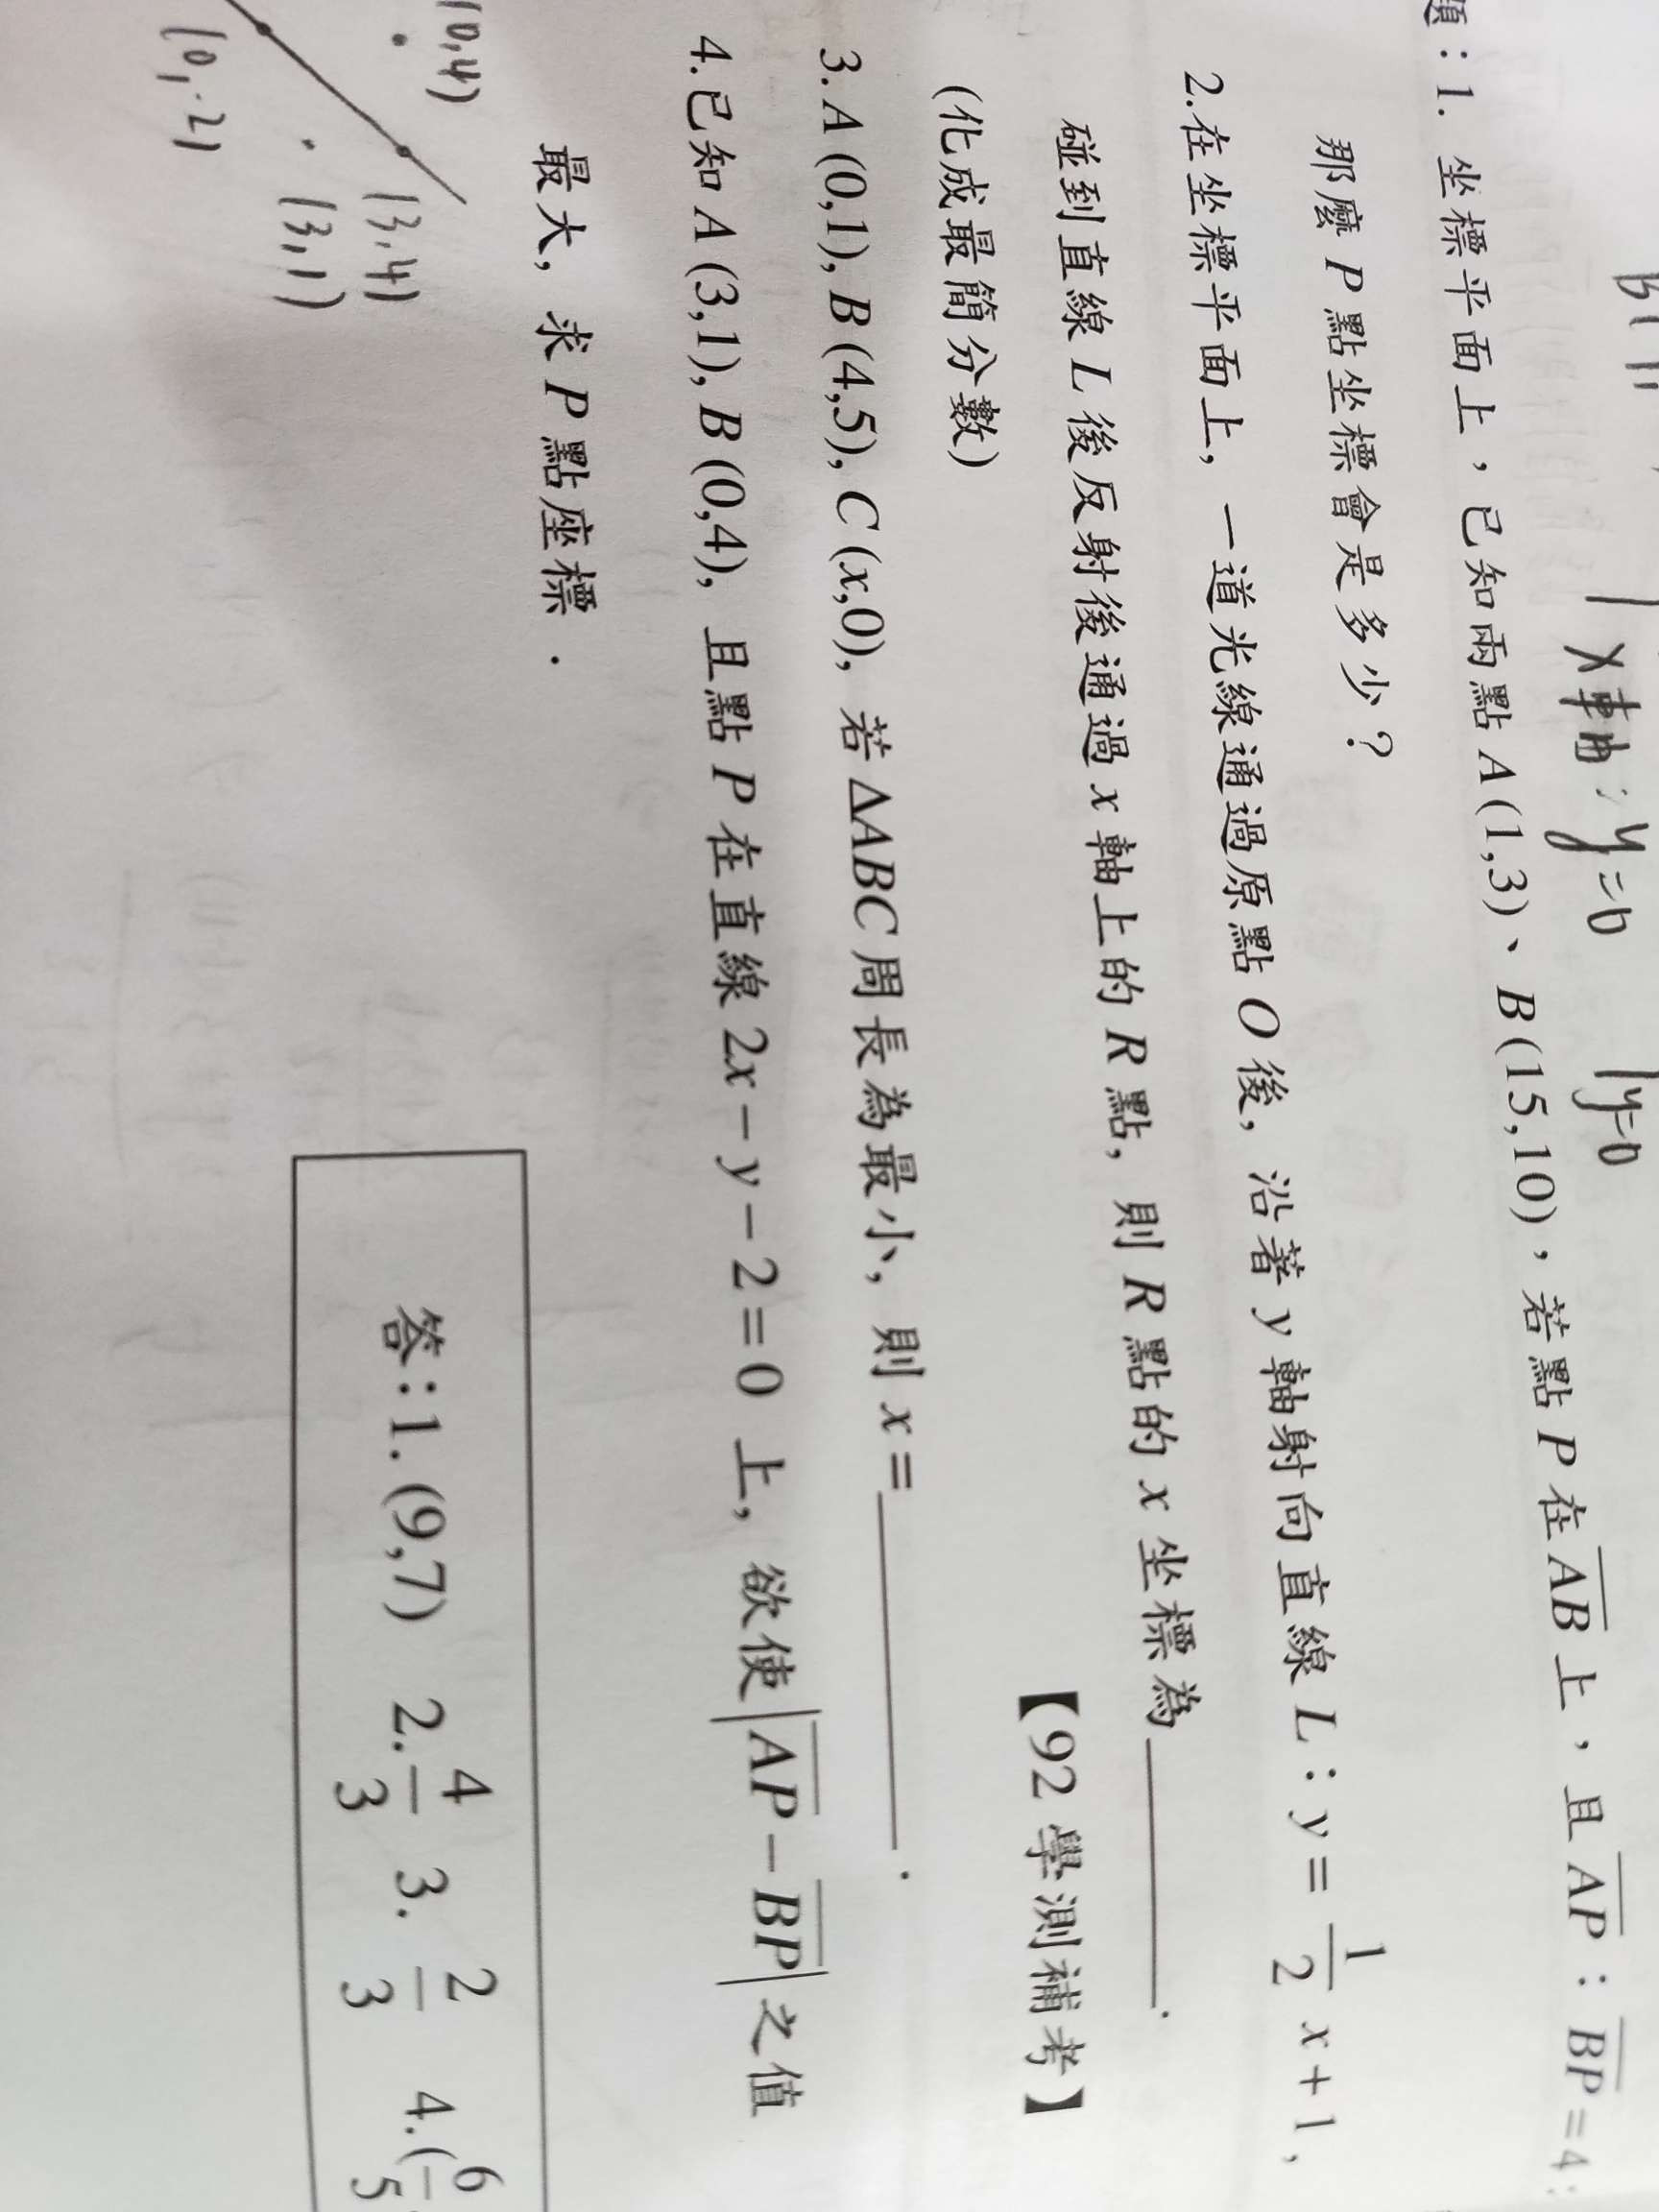 x軸:y=b
y=b
題:1. 坐標平面上,已知兩點A(1,3)、B(15,10),若點P在AB上,且AP:BP=4:
那麼P點坐標會是多少?
2.在坐標平面上,一道光線通過原點O後,沿著y軸射向直線L:y=1/2 x+1,
碰到直線L後反射後通過x軸上的R點,則R點的x坐標為______.
(化成最簡分數) 【92學測補考】
3.A(0,1),B(4,5),C(x,0),若ΔABC周長為最小,則x=______.
4.已知A(3,1),B(0,4),且點P在直線2x-y-2=0上,欲使|AP-BP|之值
最大,求P點座標.
(0,4)
(3,4)
(3,1)
(0,-2)
答:1.(9,7) 2.4/3 3.2/3 4.(6/5